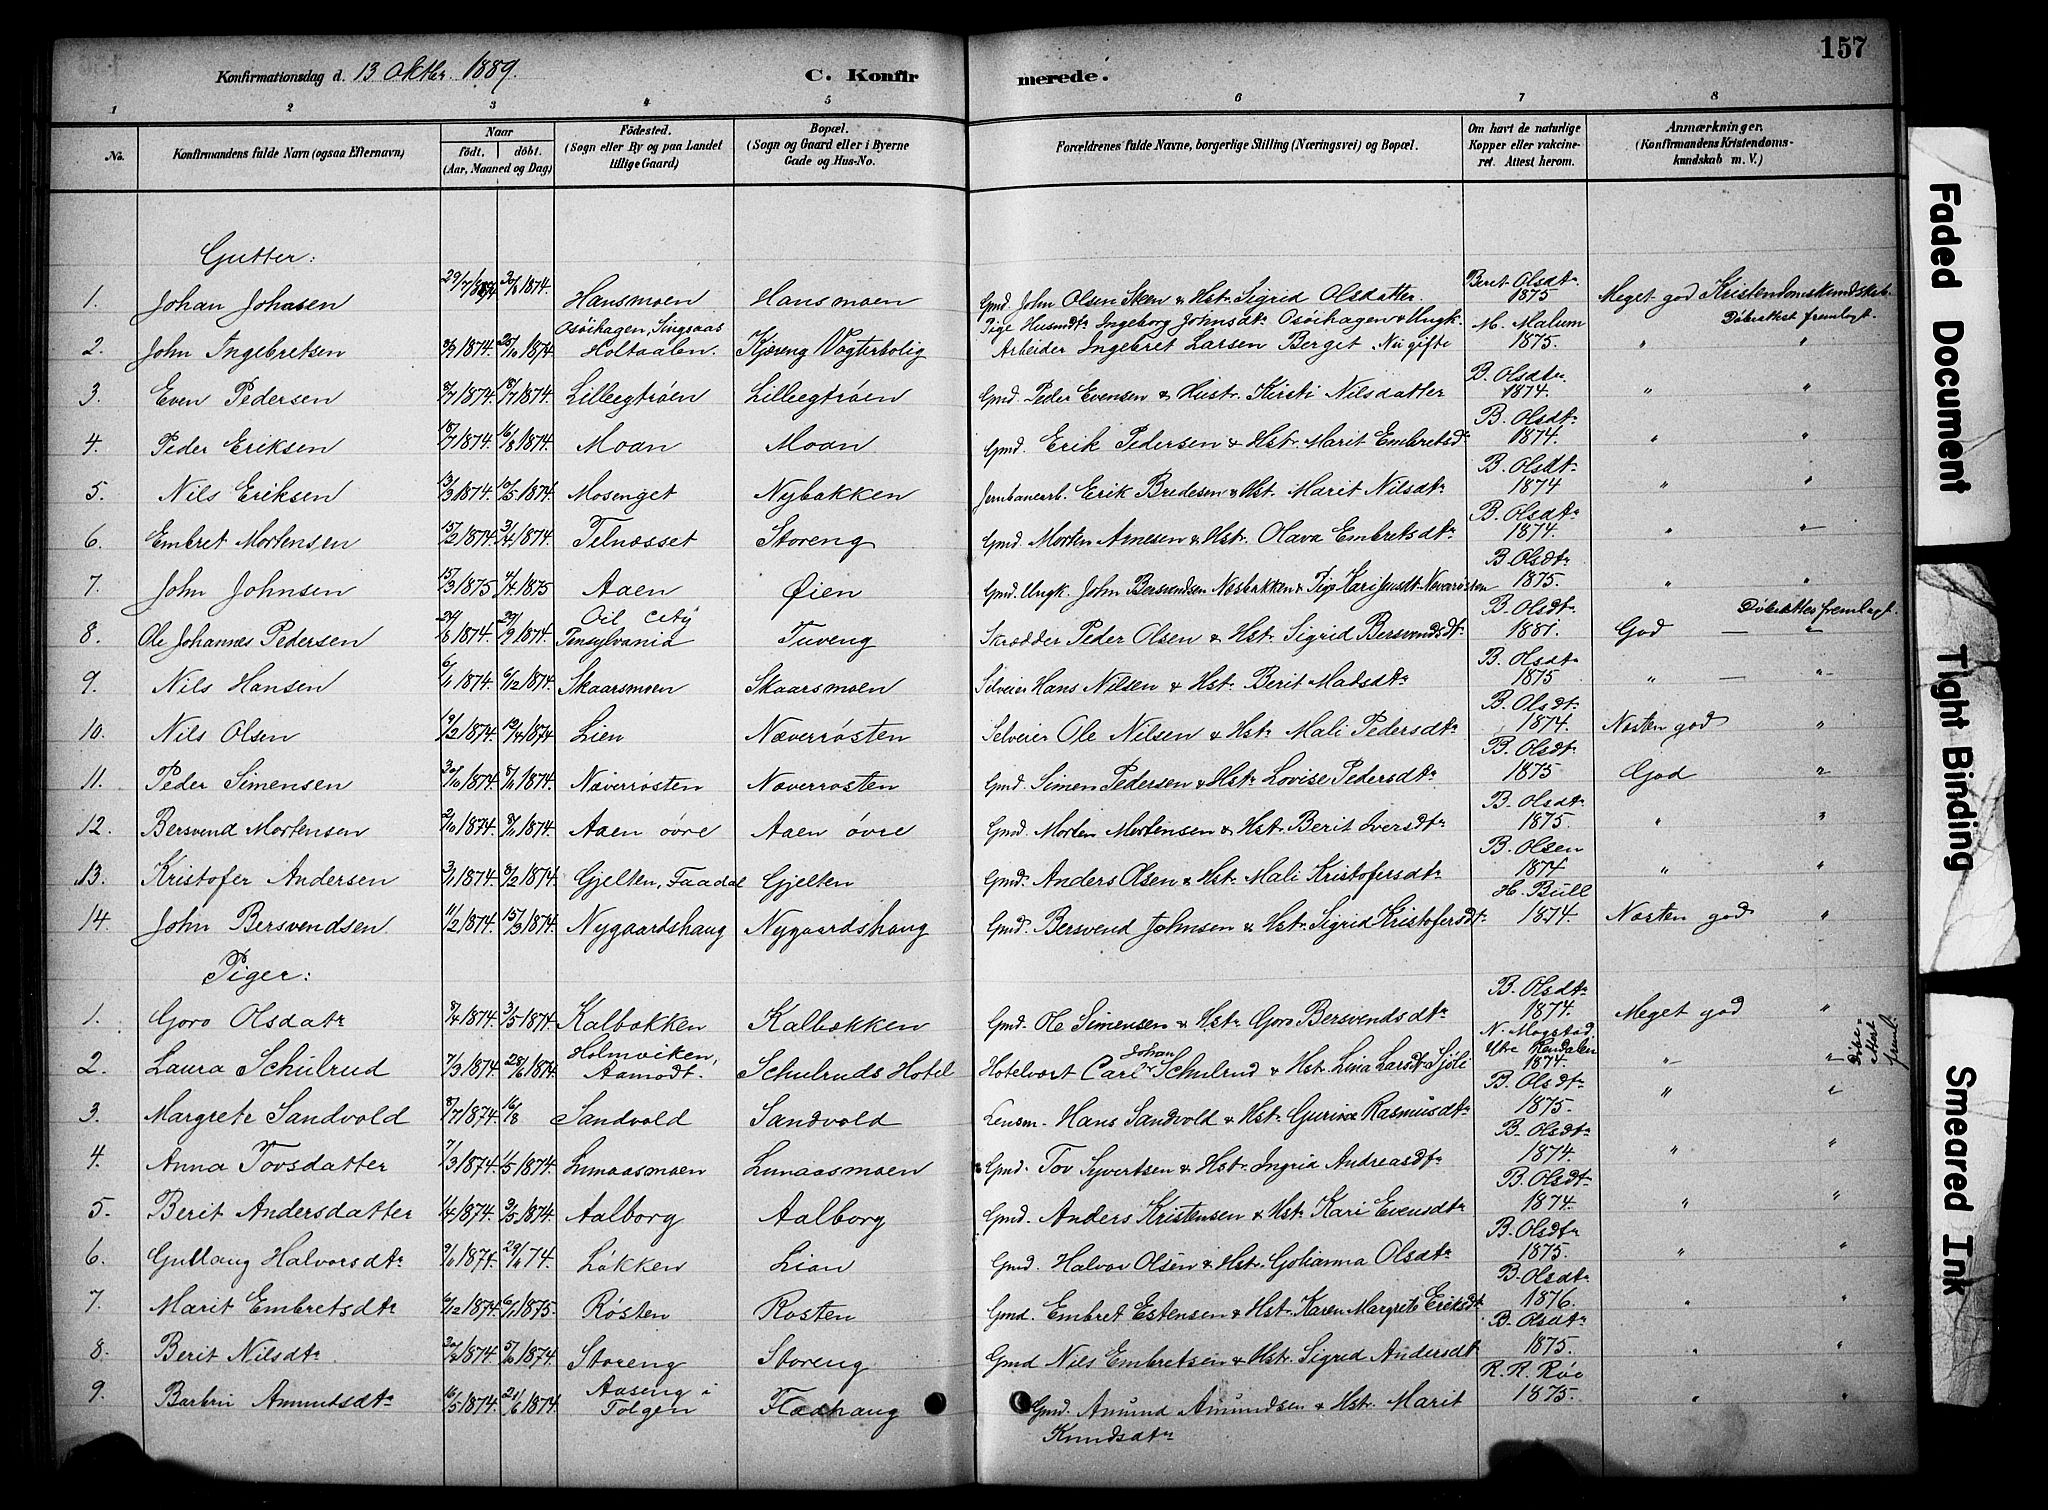 157
Konfirmationsdag d. 13 Oktbr. 1889.
C. Konfirmerede.
1 2 3 4 5 6 7 8
No.
Konfirmandens fulde Navn (ogsaa Efternavn)
Naar
födt, döbt.
(Aar, Maaned og Dag)
Födested.
(Sogn eller By og paa Landet
tillige Gaard)
Bopæl.
(Sogn og Gaard eller i Byerne
Gade og Hus-No.
Forældrenes fulde Navne, borgerlige Stilling (Næringsvei) og Bopæl.
Om havt de naturlige
Kopper eller vakcine-
ret. Attest herom.
Anmærkninger.
(Konfirmandens Kristendoms-
kundskab m. V.)
Gutter:
1. Johan Johnsen 29/7 1874 30/8 1874. Hansmoen Hansmoen Gmd. John Olsen Steen & Hst. Sigrid Olsdatter Berit Olsdtr 1875 Meget god Kristendomskundskab.
2. John Ingebretsen 1874. 1874 Osöihagen, Singsaas Holtaalen. Kjøseng Vogterbolig Pige Husmdtr Ingeborg Johnsdtr Osöihagen & Ungk. Arbeider Ingebret Larsen Berget. Nu gifte M. Malum 1875. " Döbeattest fremlagt. "
3. Even Pedersen 1874. 1874. Lillegtröen Lillegtröen Gmd. Peder Evensen & Hustr. Kirsti Nilsdatter B. Olsdtr. 1874. " "
4. Peder Eriksen 18/7 1874. 16/8 1874. Moan Moan Gmd. Erik Pedersen & Hstr. Marit Embretsdtr B. Olsdtr 1874. " "
5. Nils Eriksen 13/3 1874. 10/5 1874. Mosenget Nybakken Jernbanearb. Erik Bredesen & Hst. Marit Nilsdtr B. Olsdtr 1874 " "
6. Embret Mortensen 15/2 1874. 3/4 1874. Telnæsset Storeng Gmd. Morten Arnesen & Hstr. Olava Embretsdtr B. Olsdtr 1874. " "
7. John Johnsen 15/3 1875 4/4 1875 Aaen Øien Gmd. Ungk. John Bersvendsen Næsbakken & Pige Kari Jensdtr Næverösten B. Olsdtr 1875. " "
8. Ole Johannes Pedersen 24/6 1874. 27/9 1874. Oil City Pensylvania Tuveng Skrædder Peder Olsen & Hst. Sigrid Bersvendsdtr B. Olsdtr 1881. God — Döbeattest fremlagt. "
9. Nils Hansen 6/11 1874. 6/12 1874. Skaarsmoen Skaarsmoen Selveier Hans Nilsen & Hst. Berit Madsdtr B. Olsdtr 1875 " — "
10. Nils Olsen 19/2 1874. 19/4 1874 Lien Næverrösten Selveier Ole Nilsen & Hst. Mali Pedersdtr B. Olsdtr 1874. Næsten god "
11. Peder Simensen 30/10 1874. 8/11 1874. Næverrösten Næverrosten Gmd. Simen Pedersen & Hst. Lovise Pedersdtr B. Olsdtr 1875 God "
12. Bersvend Mortensen 2/10 1874. 8/11 1874. Aaen övre Aaen övre Gmd. Morten Mortensen & Hst. Berit Iversdtr B. Olsdtr 1875. " "
13. Kristofer Andersen 3/11 1874. 8/12 1874. Gjelten, Faadal Gjelten Gmd. Anders Olsen & Hst. Mali Kristofersdtr B. Olsen 1874 " "
14. John Bersvendsen 11/2 1874. 15/3 1874. Nygaardshaug Nygaardshaug Gmd. Bersvend Johnsen & Hst. Sigrid Kristofersdtr H. Bull 1874. Næsten god "
Piger:
1. Goro Olsdatr 8/4 1874. 3/5 1874. Kalbækken Kalbækken Gmd. Ole Simensen & Hstr Goro Bersvendsdtr B. Olsdtr 1874. Meget god "
2. Laura Schulrud 7/3 1874. 28/6 1874. Holmviken, Aamodt. Schulruds Hotel Hotelvært Carl Johan Schulrud & Hst. Lina Larsdtr Sjöli N. Mogstad Ytre Rendalen 1874. " " Döbe=attest freml.
3. Margrete Sandvold 8/7 1874. 16/8 Sandvold Sandvold Lensm. Hans Sandvold & Hst. Gurine Rasmusdtr B. Olsdtr 1875. " "
4. Anna Tovsdatter 7/3 1874. 1/5 1874. Lunaasmoen Lunaasmoen Gmd. Tov Syvertsen & Hstr. Ingrid Andreasdtr B. Olsdtr 1874. " "
5. Berit Andersdatter 1/4 1874. 3/5 1874. Aalborg Aalborg Gmd. Anders Kristensen & Hst. Kari Evensdtr B. Olsdtr 1874. " "
6. Gullaug Halvorsdtr 1874. 74. Løkken Lian Gmd. Halvor Olsen & Hst. Golianna Olsdtr B. Olsdtr 1875. " "
7. Marit Embretsdtr 6/12 1874. 6/1 1875. Røsten Rosten Gmd. Embret Estensen & Hst. Karen Margrete Eriksdtr B. Olsdtr 1876. " "
8. Berit Nilsdtr. 1874. 5/10 1874. Storeng Storeng Gmd Nils Embretsen & Hst. Sigrid Andersdt B. Olsdtr 1875. " "
9. Barbru Amundsdtr 16/5 1874. 21/6 1874. Aaseng i Tolgen Fladhaug Gmd. Amund Amundsen & Hst. Marit Knudsdtr R. R. Röe 1875. " "
Faded Document
Tight Binding
Smeared Ink